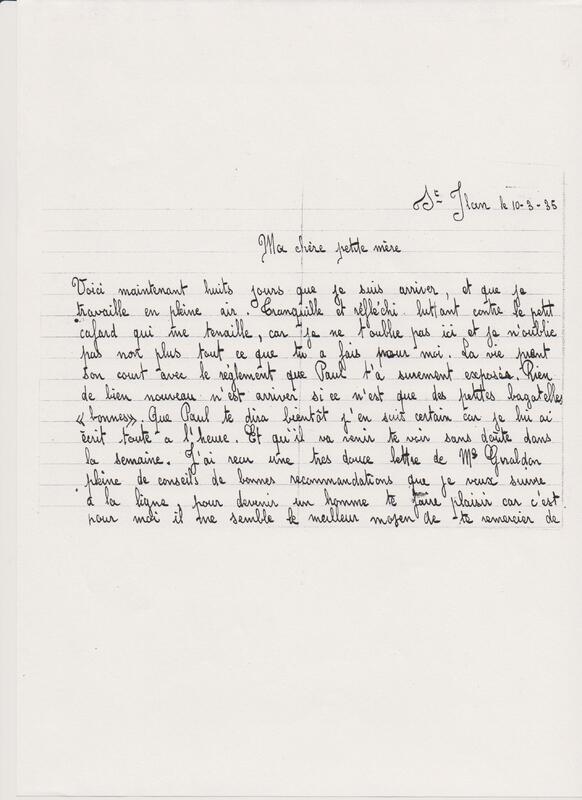 St Ilan le 10-3-35
Ma chère petite mère
Voici maintenant huits jours que je suis arriver, et que je
travaille en pleine air. Tranquille et réflechi luttant contre le petit
cafard qui me tenaille, car je ne t'oublie pas ici et je n'oublie
pas non plus tout ce que tu a fais pour moi. La vie prent
son court avec le règlement que Paul t'a surement exposés. Rien
de bien nouveau n'est arriver si ce n'est que des petites bagatelles
« bonnes » Que Paul te dira bientôt j'en suit certain car je lui ai
écrit toute a l'heure. Et qu'il va venir te voir sans doûte dans
la semaine. J'ai recu une tres douce lettre de Me
pleine de conseils de bonnes recommandations que je veux suivre
à la ligne, pour devenir un homme te faire plaisir car c'est
pour moi il me semble le meilleur moyen de te remercier de